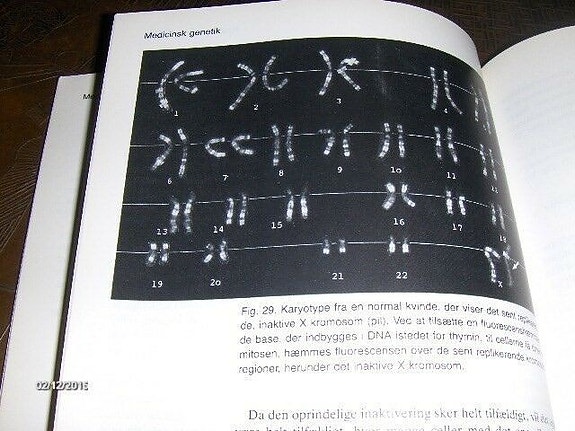 Medicinsk genetik
1 2 3 4
6 7 8 9 10 11
13 14 15 16 17 18
19 20 21 22 X
Fig. 29. Karyotype fra en normal kvinde, der viser det sent
de, inaktive X kromosom (pil). Ved at tilsætte en
de base, der indbygges i DNA istedet for thymin, til cellerne
mitosen, hæmmes fluorescensen over de sent replikerende
regioner, herunder det inaktive X kromosom.
Da den oprindelige inaktivering sker helt tilfældigt, vil
02/12/2016